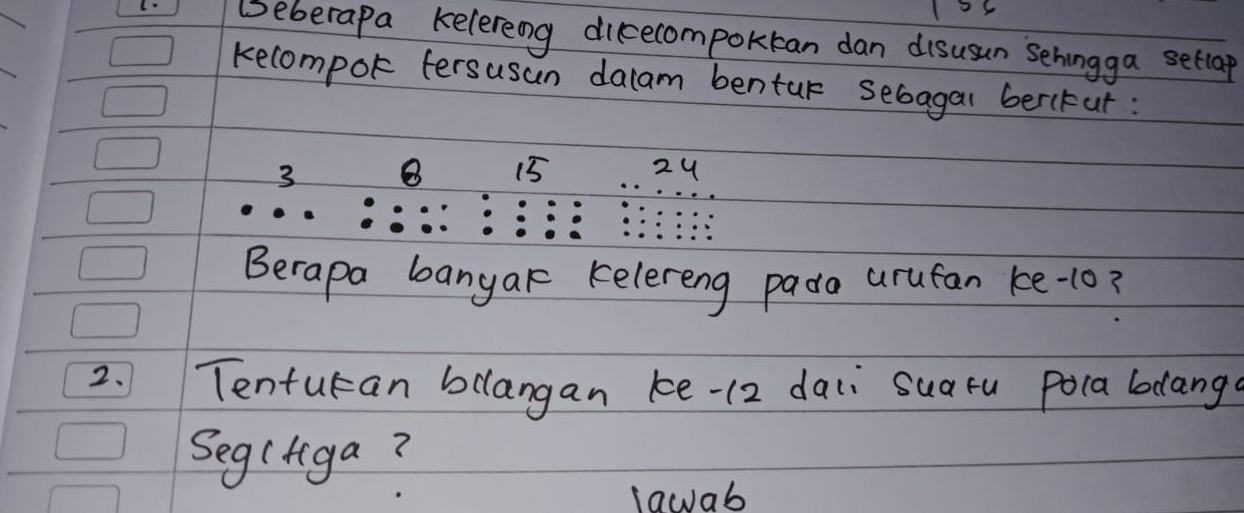 1. Beberapa kelereng dikelompokkan dan disusun sehingga setiap
kelompok tersusun dalam bentuk sebagai berikut:
3 8 15 24
Berapa banyak kelereng pada urutan ke-10?
2. Tentukan bilangan ke-12 dari suatu pola bilanga
Segitiga?
Jawab